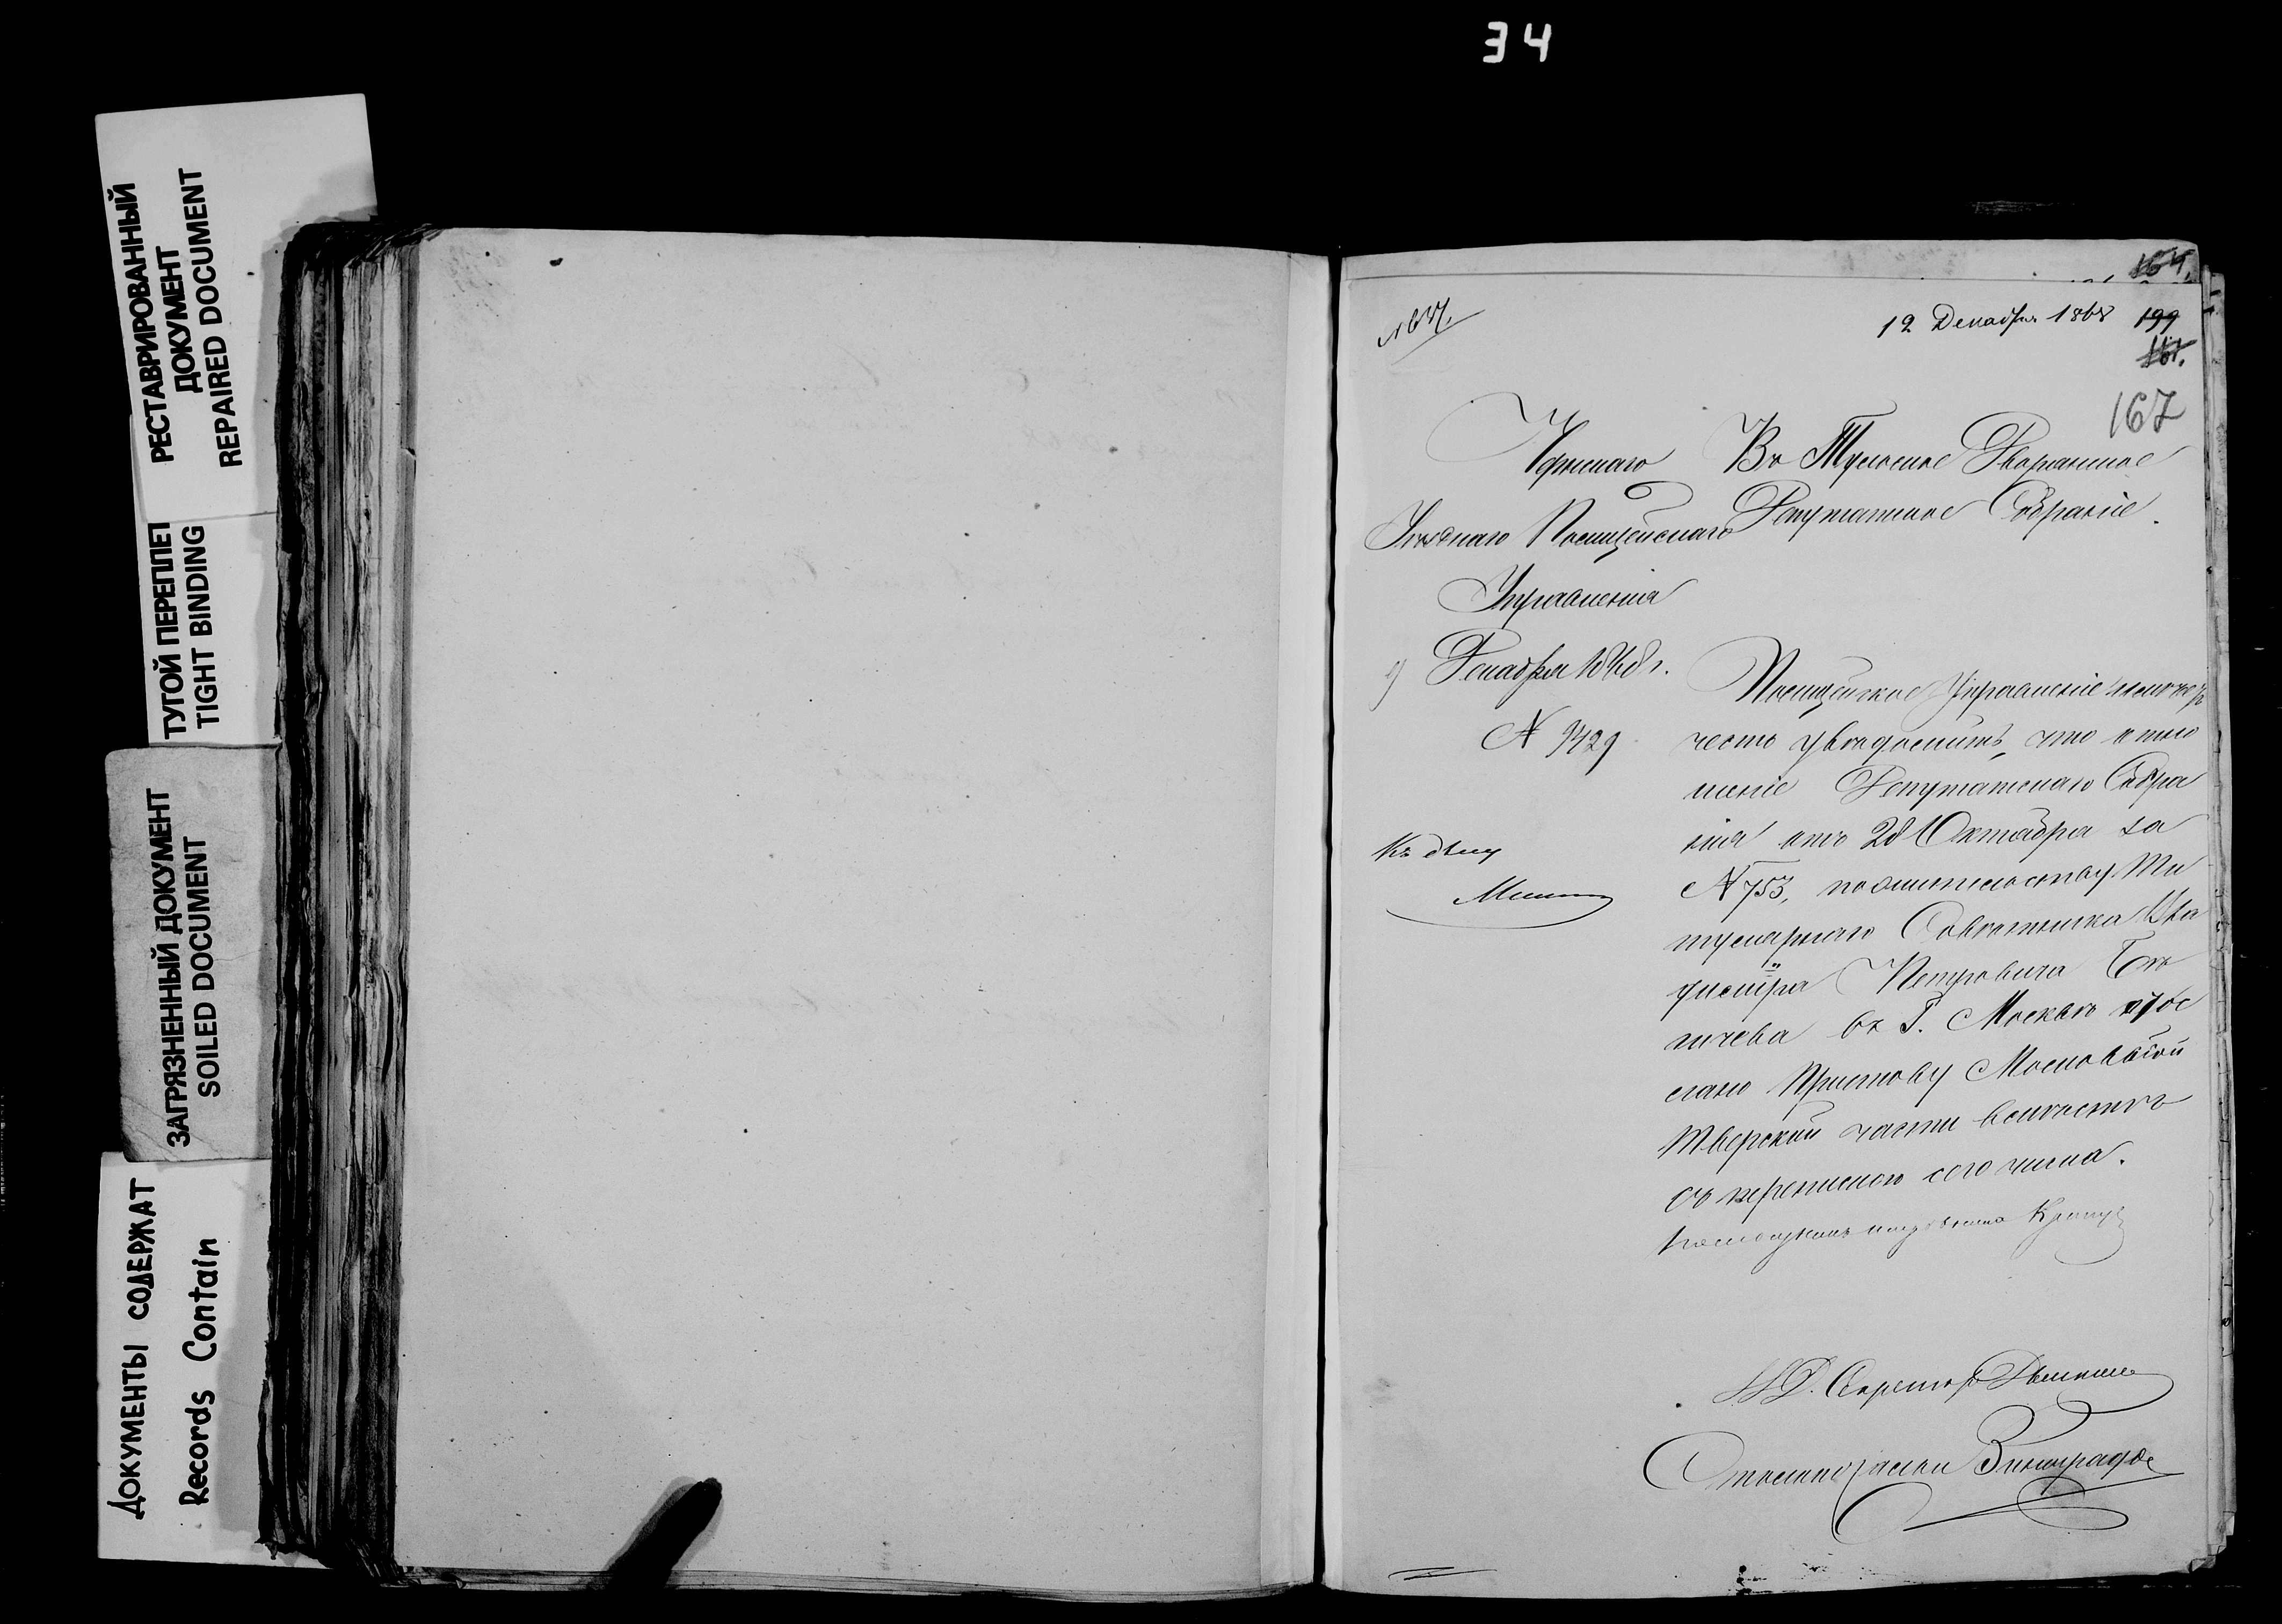 34
РЕСТАВРИРОВАННЫЙ
ДОКУМЕНТ
REPAIRED DOCUMENT
ТУГОЙ ПЕРЕПЛЕТ
TIGHT BINDING
ЗАГРЯЗНЕННЫЙ ДОКУМЕНТ
SOILED DOCUMENT
ДОКУМЕНТЫ СОДЕРЖАТ
Records Contain
164.
12 Декабря 1868
199
167
Уфимскаго
Уѣзднаго Полицейскаго
Управленія
Декабря 1868 г.
N 9429
Къ дѣлу
Въ Тульское Дворянское
Депутатское Собраніе.
Полицейское Управленіе имѣетъ
честь увѣдомить, что отно
шеніе Депутатскаго Собра
нія отъ 28 Октября за
N 753, по жительству Ти
тулярнаго Совѣтника
Петровича
въ Г. Москвѣ отос
лано Приставу Московской
Тверской части вмѣстѣ
съ перепискою сего числа.
И.Д. Секретаря
Столоначальникъ